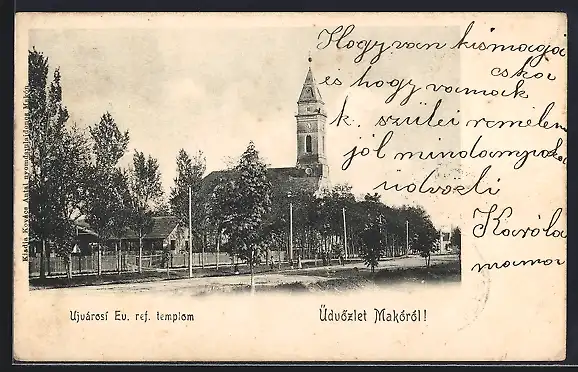 Hogy van kismaga
cska
és hogy vannak
k. szülei remélem
jól mindnyájan
üdvözli
Karola
mama
Kiadja Kovács Antal nyomdatulajdonos Makón.
Ujvárosi Ev. ref. templom
Üdvözlet Makóról!